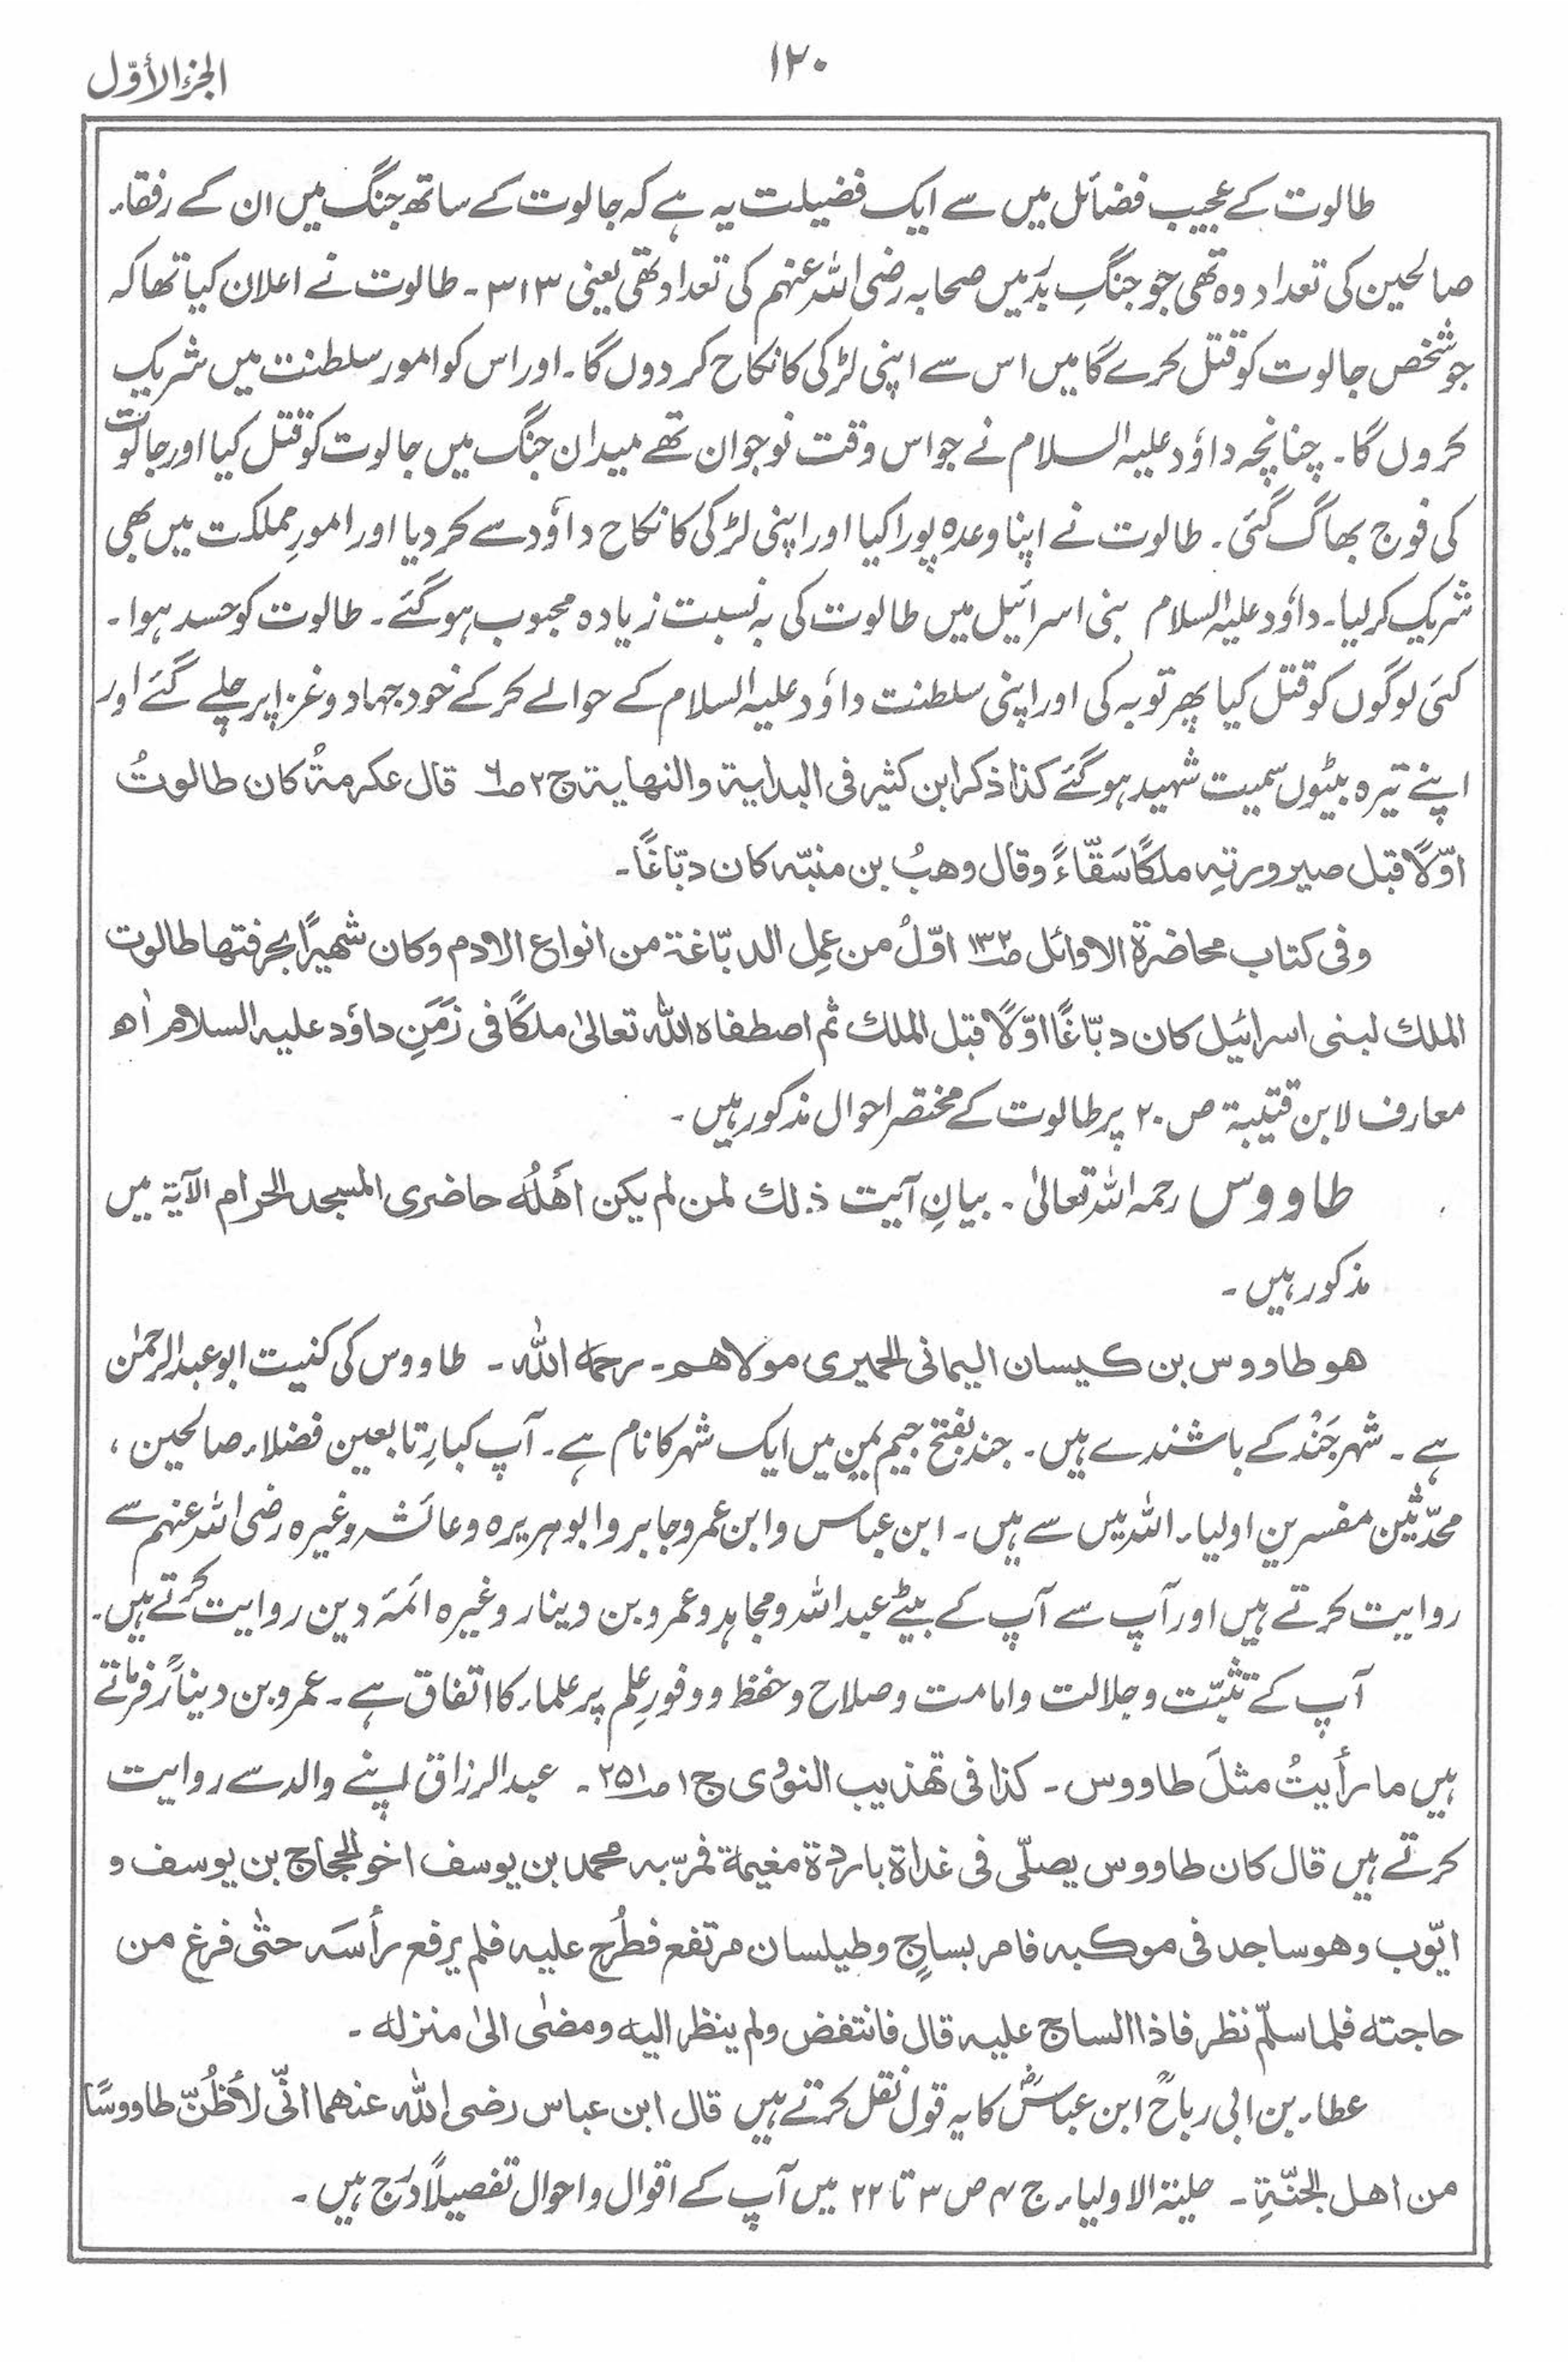 ۱۲۰
الجزء الأوّل
طالوت کے عجیب فضائل میں سے ایک فضیلت یہ ہے کہ جالوت کے ساتھ جنگ میں ان کے رفقاء
صالحین کی تعداد وہ تھی جو جنگِ بدَر میں صحابہ رضی اللہ عنہم کی تعداد تھی یعنی ۳۱۳۔ طالوت نے اعلان کیا تھا کہ
جو شخص جالوت کو قتل کرے گا میں اس سے اپنی لڑکی کا نکاح کر دوں گا۔ اور اس کو امور سلطنت میں شریک
کروں گا۔ چنانچہ داؤد علیہ السلام نے جو اس وقت نوجوان تھے میدان جنگ میں جالوت کو قتل کیا اور جالوت
کی فوج بھاگ گئی۔ طالوت نے اپنا وعدہ پورا کیا اور اپنی لڑکی کا نکاح داؤد سے کر دیا اور امورِ مملکت میں بھی
شریک کر لیا۔ داؤد علیہ السلام بنی اسرائیل میں طالوت کی بہ نسبت زیادہ محبوب ہو گئے۔ طالوت کو حسد ہوا۔
کئی لوگوں کو قتل کیا پھر توبہ کی اور اپنی سلطنت داؤد علیہ السلام کے حوالے کر کے خود جہاد و غزا پر چلے گئے اور
اپنے تیرہ بیٹوں سمیت شہید ہو گئے کذا ذکر ابن کثیر فی البدایة والنهایة ج۲ صـ۶ قال عکرمةُ کان طالوتُ
اوّلاً قبل صیرورتِه ملکًا سَقّاءً وقال وهبُ بن منبّه کان دبّاغًا۔
وفی کتاب محاضرة الاوائل صـ۱۳۲ اوّلُ من عمِل الدبّاغة من انواع الادم وکان شهیرًا بحرفتها طالوت
الملك لبنی اسرائیل کان دبّاغًا اوّلًا قبل الملك ثم اصطفاه الله تعالیٰ ملکًا فی زَمَنِ داؤد علیه السلام اھ
معارف لابن قتیبة ص ۲۰ پر طالوت کے مختصر احوال مذکور ہیں۔
طاووس رحمہ اللہ تعالیٰ۔ بیانِ آیت ذٰلك لمن لم یکن اَهْلُه حاضری المسجد الحرام الآیة میں
مذکور ہیں۔
هو طاووس بن کیسان الیمانی الحمیری مولاهم۔ رحمه الله۔ طاووس کی کنیت ابو عبد الرحمٰن
ہے۔ شہر جَنُد کے باشندے ہیں۔ جند بفتح جیم یمن میں ایک شہر کا نام ہے۔ آپ کبارِ تابعین فضلاء صالحین،
محدّثین مفسرین اولیاء اللہ میں سے ہیں۔ ابن عباس و ابن عمر و جابر و ابو ہریرہ و عائشہ وغیرہ رضی اللہ عنہم سے
روایت کرتے ہیں اور آپ سے آپ کے بیٹے عبد اللہ و مجاہد و عمرو بن دینار وغیرہ ائمہ دین روایت کرتے ہیں۔
آپ کے تثبّت و جلالت و امامت و صلاح و حفظ و وفورِ علم پر علماء کا اتفاق ہے۔ عمرو بن دینارؒ فرماتے
ہیں ما رأیتُ مثلَ طاووس۔ کذا فی تهذیب النووی ج۱ صـ۲۵۱۔ عبدالرزاق اپنے والد سے روایت
کرتے ہیں قال کان طاووس یصلّی فی غداة باردة مغیمة فمرّ به محمد بن یوسف اخو الحجاج بن یوسف و
ایّوب وهو ساجد فی موکبه فامر بساجٍ وطیلسان مرتفع فطُرح علیه فلم یرفع رأسَه حتّٰی فرغ من
حاجته فلما سلّم نظر فاذا الساج علیه قال فانتفض ولم ینظر الیه ومضٰی الیٰ منزله۔
عطاء بن ابی رباحؒ ابن عباسؓ کا یہ قول نقل کرتے ہیں قال ابن عباس رضی الله عنهما انّی لأظُنّ طاووسًا
من اهل الجنّةِ۔ حلیة الاولیاء ج ۴ ص ۳ تا ۲۲ میں آپ کے اقوال و احوال تفصیلاً درَج ہیں۔